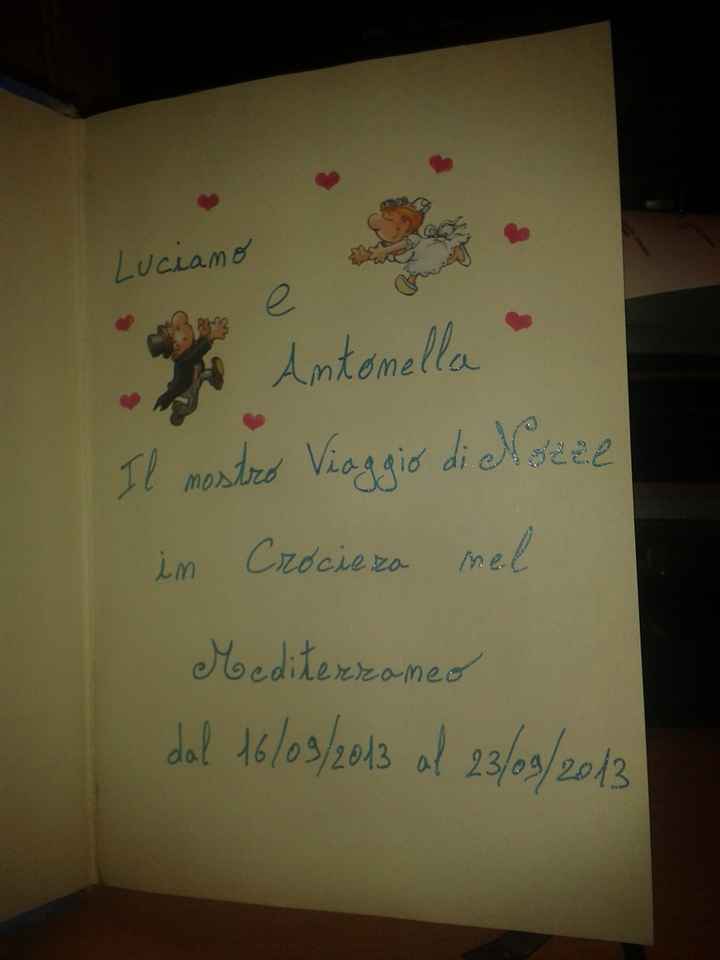 Luciano
e
Antonella
Il nostro Viaggio di Nozze
in Crociera nel
Mediterraneo
dal 16/09/2013 al 23/09/2013